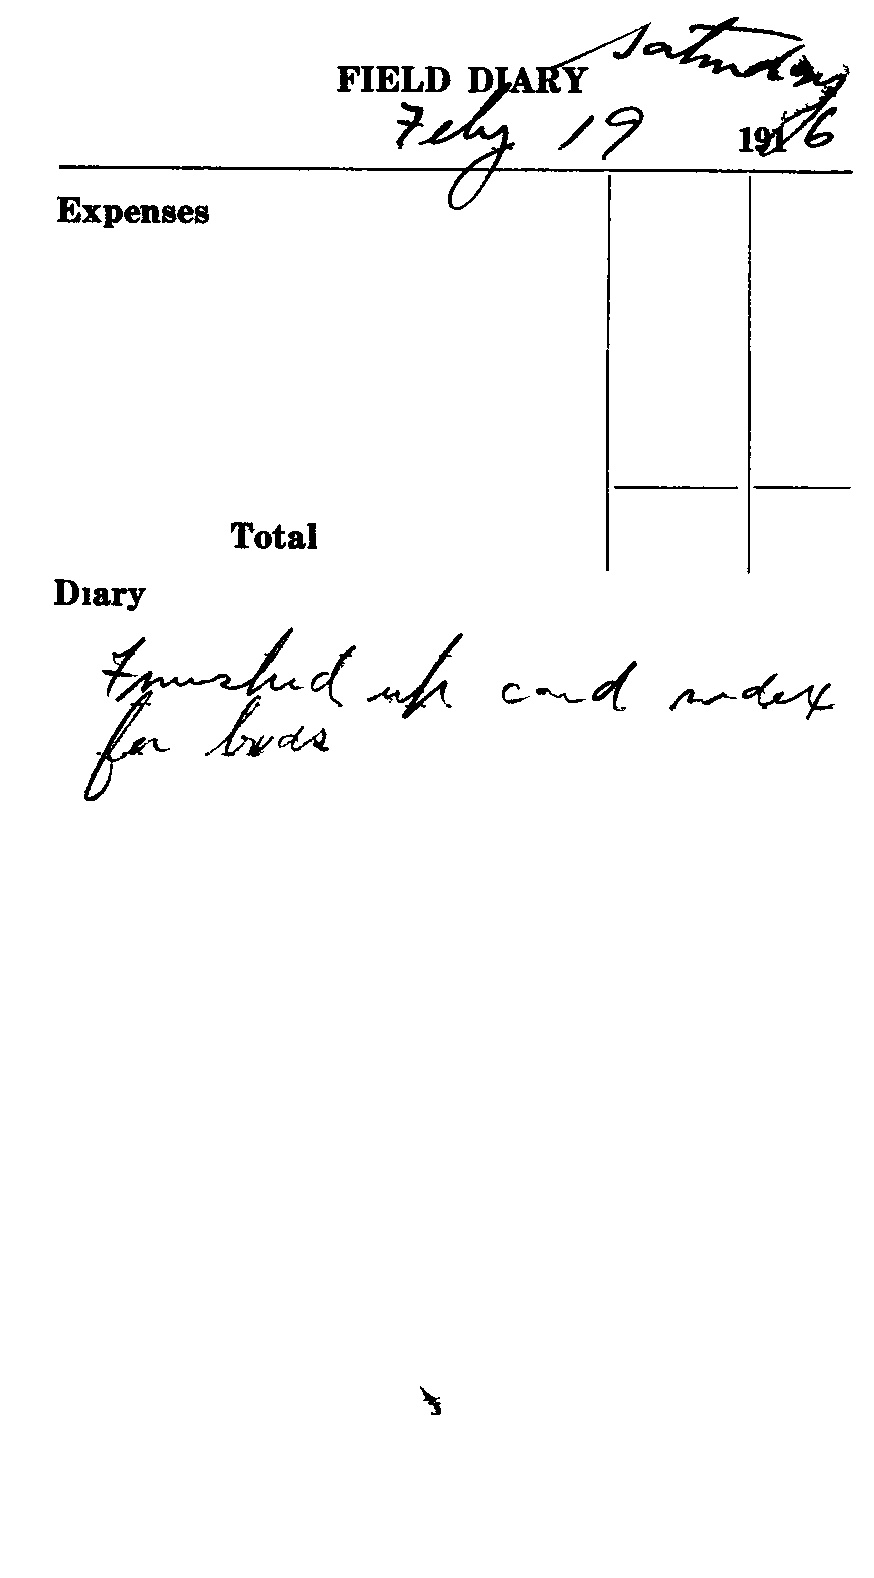 Saturday
FIELD DIARY
Feby 19 1916
Expenses
Total
Diary
Finished up card index
for birds